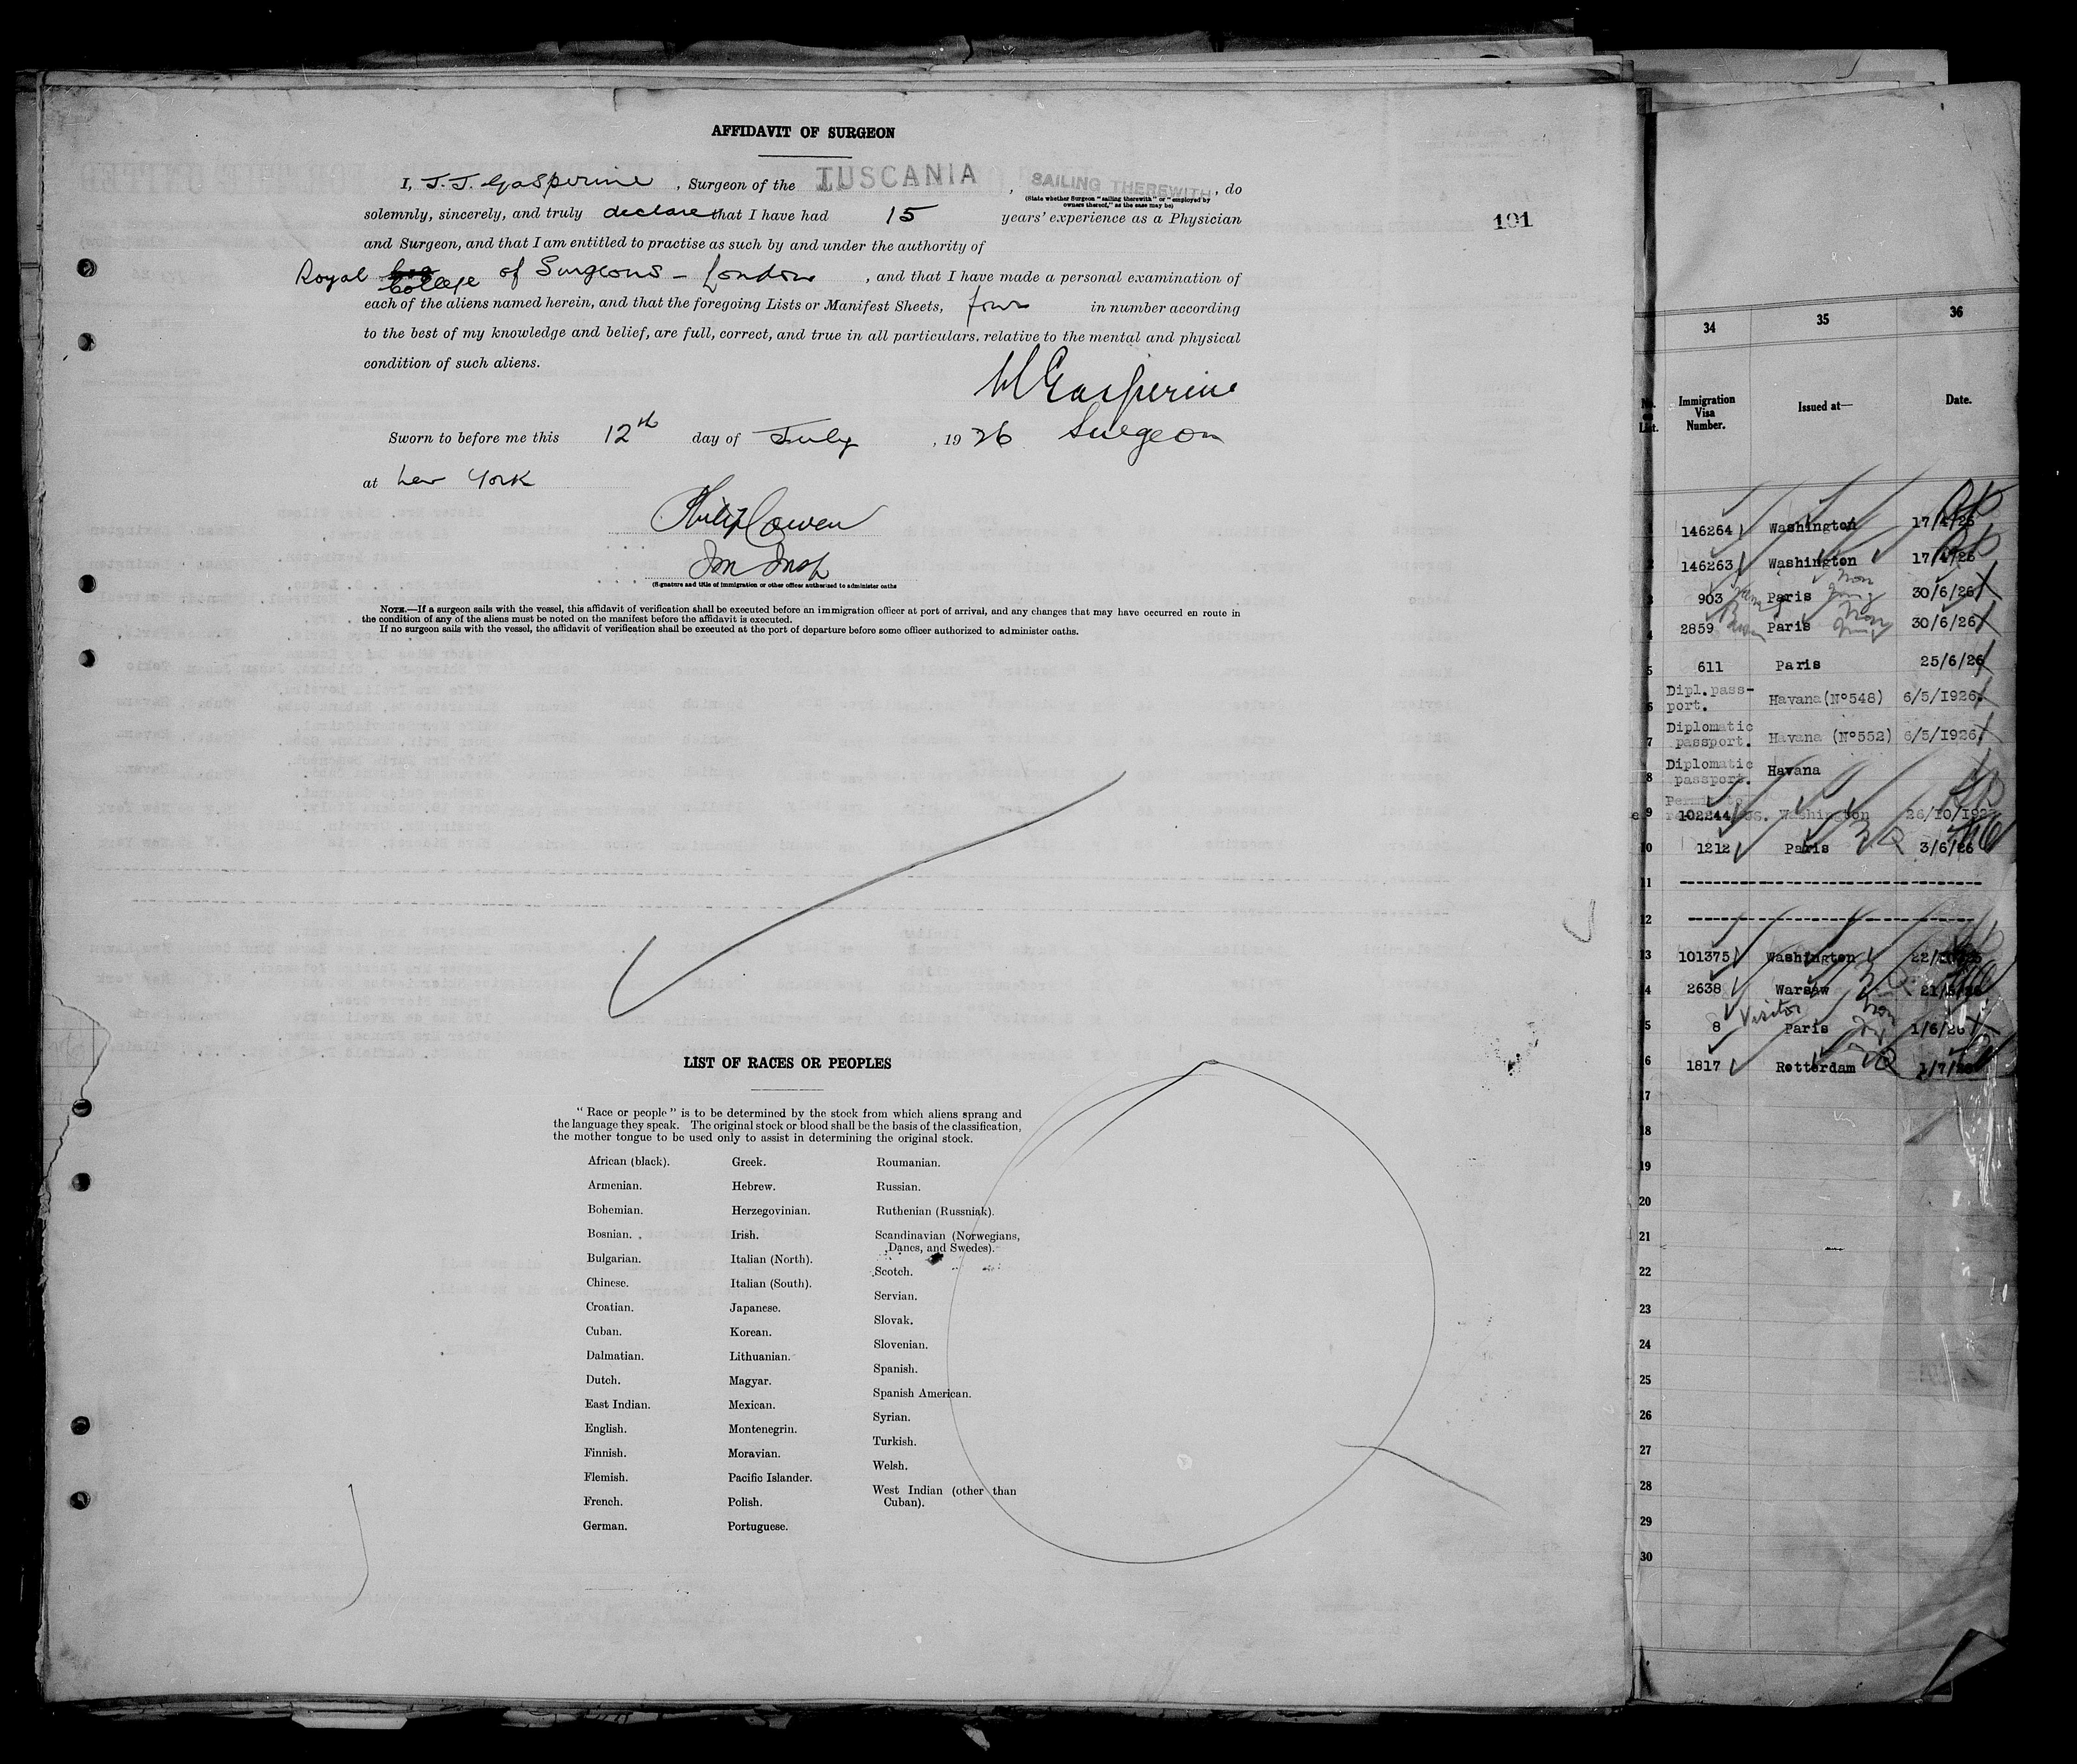 AFFIDAVIT OF SURGEON
I, J. J. Gasperine, Surgeon of the TUSCANIA, SAILING THEREWITH, do
(State whether Surgeon "sailing therewith" or "employed by
owners thereof," as the case may be)
solemnly, sincerely, and truly declare that I have had 15 years' experience as a Physician
101
and Surgeon, and that I am entitled to practise as such by and under the authority of
Royal College of Surgeons - London, and that I have made a personal examination of
each of the aliens named herein, and that the foregoing Lists or Manifest Sheets, four in number according
to the best of my knowledge and belief, are full, correct, and true in all particulars, relative to the mental and physical
condition of such aliens.
Gasperine
Sworn to before me this 12th day of July, 1926 Surgeon
at New York
Philip Cowen
Imm Insp
(Signature and title of immigration or other officer authorized to administer oaths
NOTE.—If a surgeon sails with the vessel, this affidavit of verification shall be executed before an immigration officer at port of arrival, and any changes that may have occurred en route in
the condition of any of the aliens must be noted on the manifest before the affidavit is executed.
If no surgeon sails with the vessel, the affidavit of verification shall be executed at the port of departure before some officer authorized to administer oaths.
LIST OF RACES OR PEOPLES
"Race or people" is to be determined by the stock from which aliens sprang and
the language they speak. The original stock or blood shall be the basis of the classification,
the mother tongue to be used only to assist in determining the original stock.
African (black). Greek. Roumanian.
Armenian. Hebrew. Russian.
Bohemian. Herzegovinian. Ruthenian (Russniak).
Bosnian. Irish. Scandinavian (Norwegians,
Danes, and Swedes).
Bulgarian. Italian (North). Scotch.
Chinese. Italian (South). Servian.
Croatian. Japanese. Slovak.
Cuban. Korean. Slovenian.
Dalmatian. Lithuanian. Spanish.
Dutch. Magyar. Spanish American.
East Indian. Mexican. Syrian.
English. Montenegrin. Turkish.
Finnish. Moravian. Welsh.
Flemish. Pacific Islander. West Indian (other than
Cuban).
French. Polish.
German. Portuguese.
34 35 36
No. on List. Immigration Visa Number. Issued at— Date.
1 146264 Washington 17/4/26
2 146263 Washington 17/4/26
3 903 Paris 30/6/26
4 2859 Paris 30/6/26
5 611 Paris 25/6/26
6 Dipl. pass-
port. Havana (Nº548) 6/5/1926
7 Diplomatic
passport. Havana (Nº552) 6/5/1926
8 Diplomatic
passport. Havana
9 102244 US. Washington 26/10/192
10 1212 Paris 3/6/26
11
12
13 101375 Washington 22/
14 2638 Warsaw 21/
15 8 Visitor Paris 1/6/26
16 1817 Rotterdam 1/7/
17
18
19
20
21
22
23
24
25
26
27
28
29
30